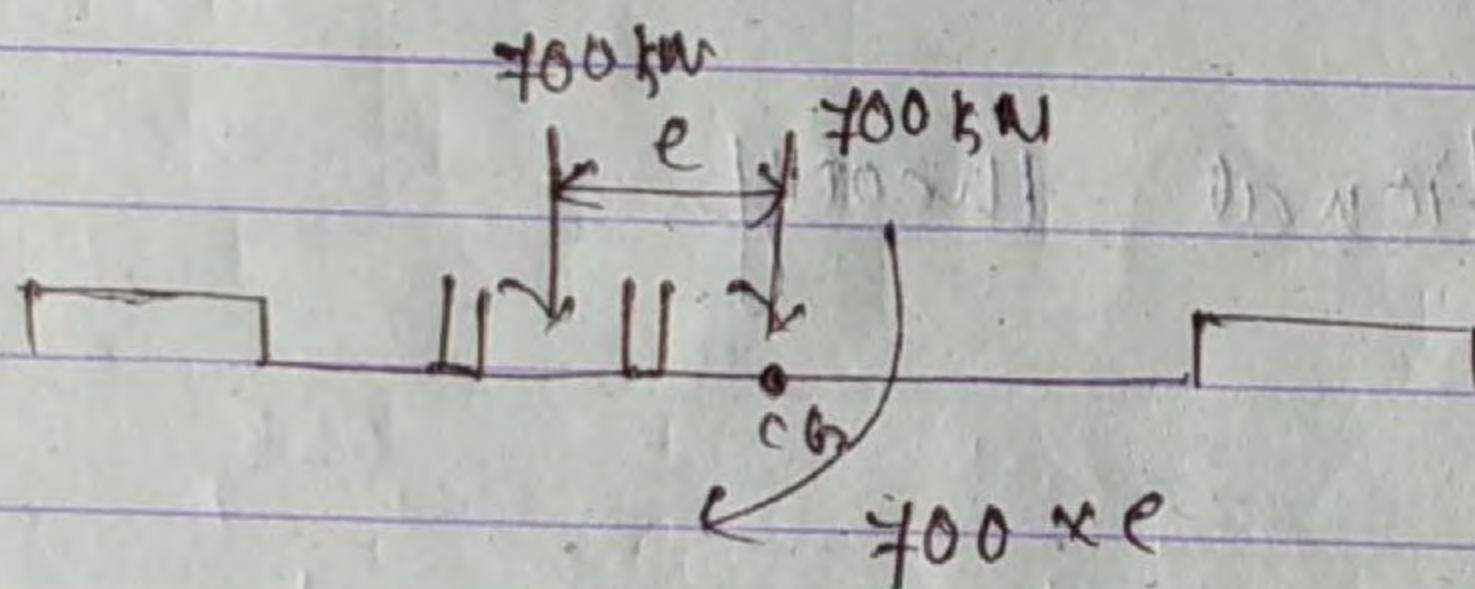 700 kN
e
700 kN
CG
700 x e